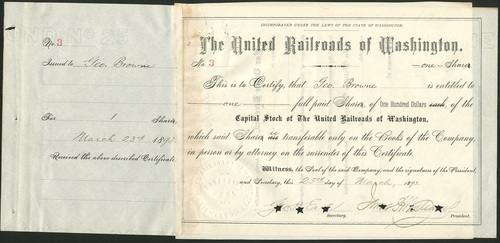 No. 3
Issued to Geo. Browne
For 1 Shares
March 23rd 189
Received the above described Certificate.
INCORPORATED UNDER THE LAWS OF THE STATE OF WASHINGTON.
The United Railroads of Washington.
No. 3 one Share
This is to Certify, that Geo. Browne is entitled to
one full paid Share of One Hundred Dollars each, of the
Capital Stock of The United Railroads of Washington,
which said Share is transferable only on the Books of the Company,
in person or by attorney on the surrender of this Certificate.
Witness, the Seal of the said Company, and the signatures of the President
and Secretary, this 23rd day of March, 189
Secretary. President.